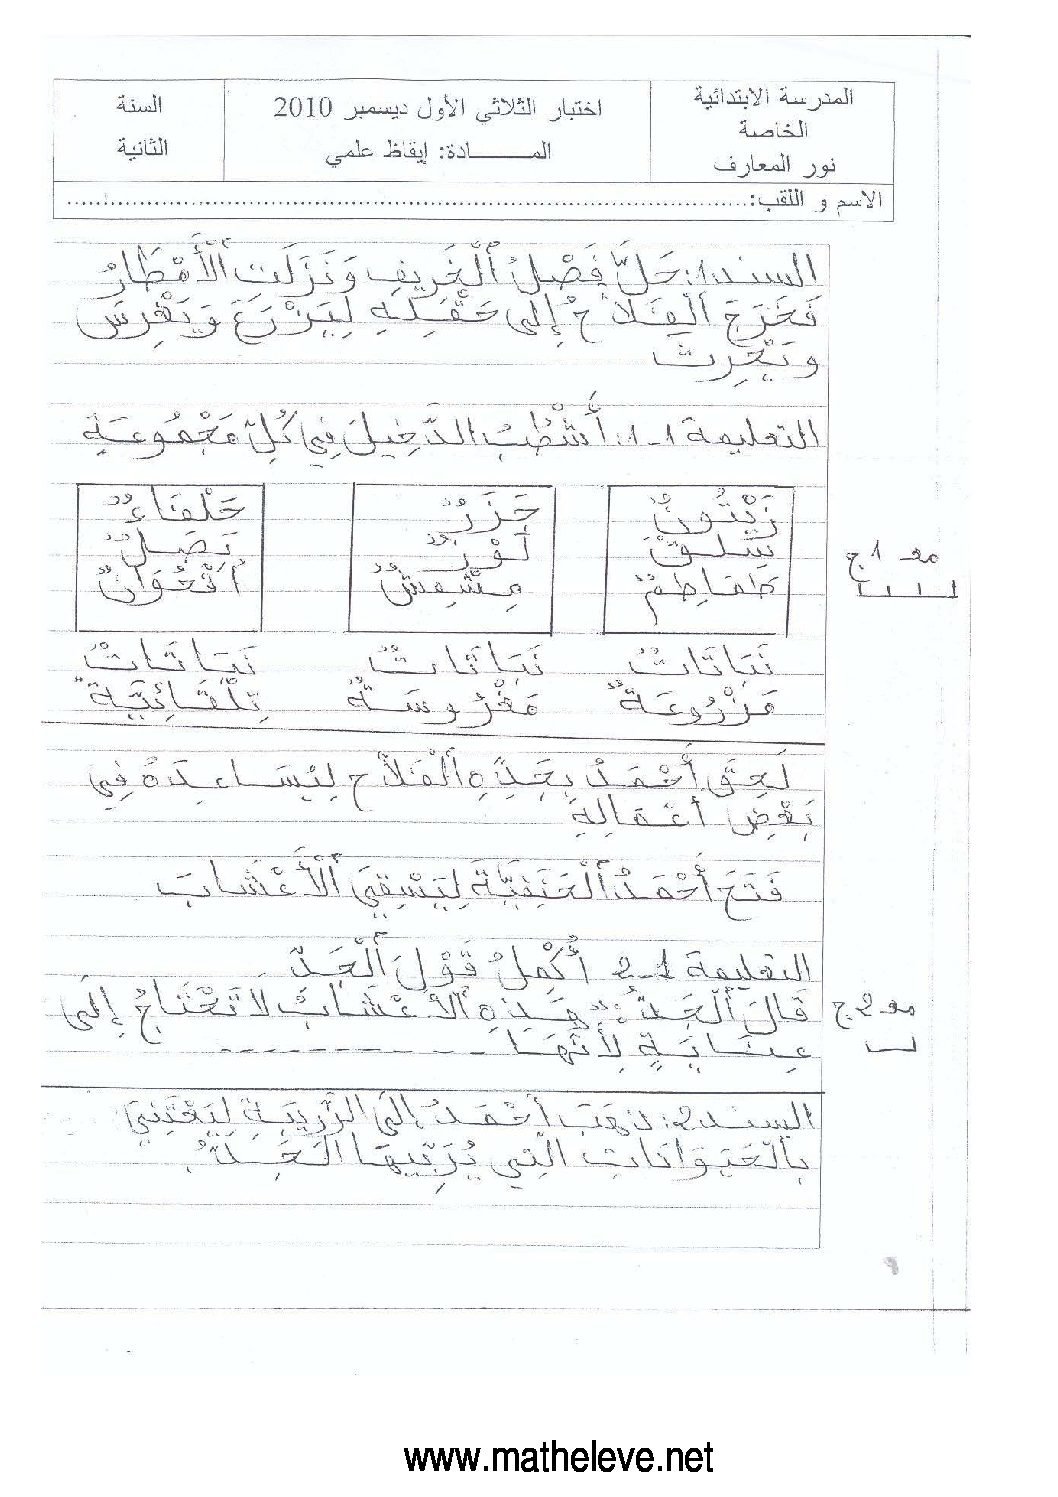 المدرسة الابتدائية
الخاصة
نور المعارف
اختبار الثلاثي الأول ديسمبر 2010
المـــــــادة: إيقاظ علمي
السنة
الثانية
الاسم و اللقب:......................................................................................
السند1: حَلَّ فَصْلُ اَلْخَرِيفِ وَنَزَلَتْ اَلْأَمْطَارُ
فَخَرَجَ اَلْفَلاَّحُ إِلَى حَقْلِهِ لِيَزْرَعَ وَيَغْرِسَ
وَيَحْرِثَ
التعليمة 1-1: أَشْطُبُ الدَّخِيلَ فِي كُلِّ مَجْمُوعَةٍ
زَيْتُونٌ
سِلْقٌ
طَمَاطِمٌ
جَزَرٌ
لَوْزٌ
مِشْمِشٌ
حَلْفَاءٌ
بَصَلٌ
أُقْحُوَانٌ
مع 1 ج
نَبَاتَاتٌ
مَزْرُوعَةٌ
نَبَاتَاتٌ
مَغْرُوسَةٌ
نَبَاتَاتٌ
تِلْقَائِيَّةٌ
لَحِقَ أَحْمَدُ بِجَدِّهِ اَلْفَلاَّحِ لِيُسَاعِدَهُ فِي
بَعْضِ أَعْمَالِهِ
فَتَحَ أَحْمَدُ اَلْحَنَفِيَّةَ لِيَسْقِيَ اَلْأَعْشَابَ
التعليمة 1-2 أُكْمِلُ قَوْلَ اَلْجَدِّ
قَالَ اَلْجَدُّ: " هَذِهِ اَلْأَعْشَابُ لاَ تَحْتَاجُ إِلَى
عِنَايَةٍ لِأَنَّهَا - - - - - - - - - - -
مع 2 ج
السند2: ذَهَبَ أَحْمَدُ إِلَى الزَّرِيبَةِ لِيَعْتَنِيَ
بِالْحَيَوَانَاتِ الَّتِي يُرَبِّيهَا الْجَدُّ.
www.matheleve.net